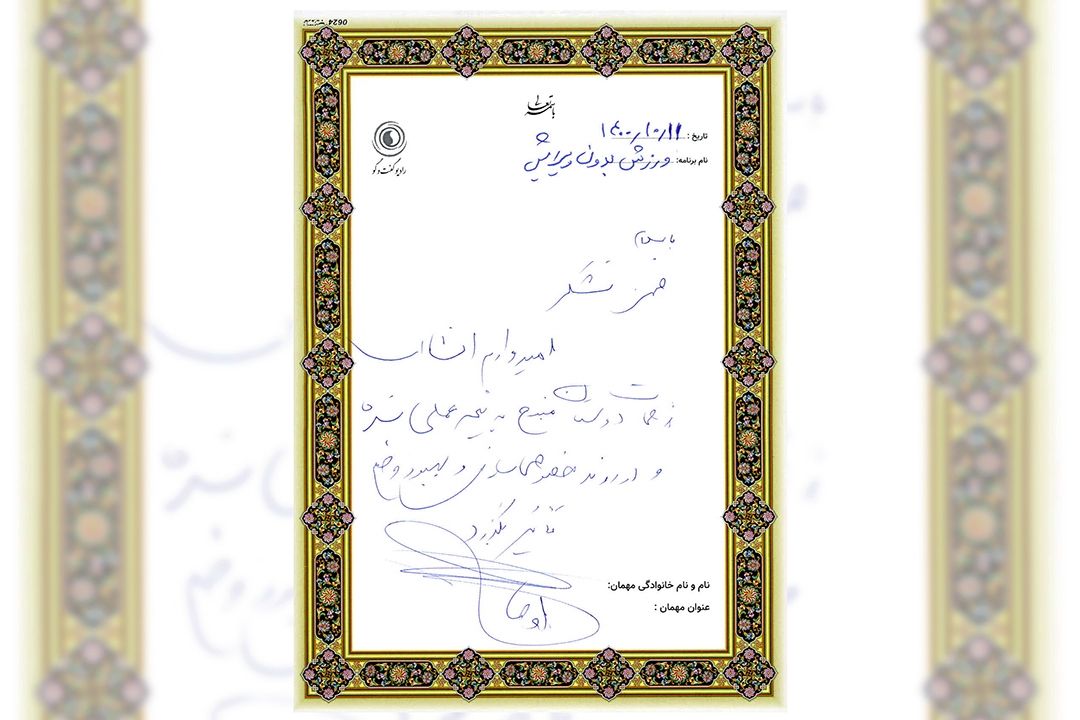 0624
باسمه تعالی
تاریخ: ۱۴۰۰/۱۰/۱۱
نام برنامه: ورزش بدون ویرایش
رادیو گفت و گو
باسلام
ضمن تشکر
امیدوارم انشااله
زحمات دوستان منتج به نتیجه عملی شده
و در روند و بهبود وضع
بگذرد
نام و نام خانوادگی مهمان:
عنوان مهمان :